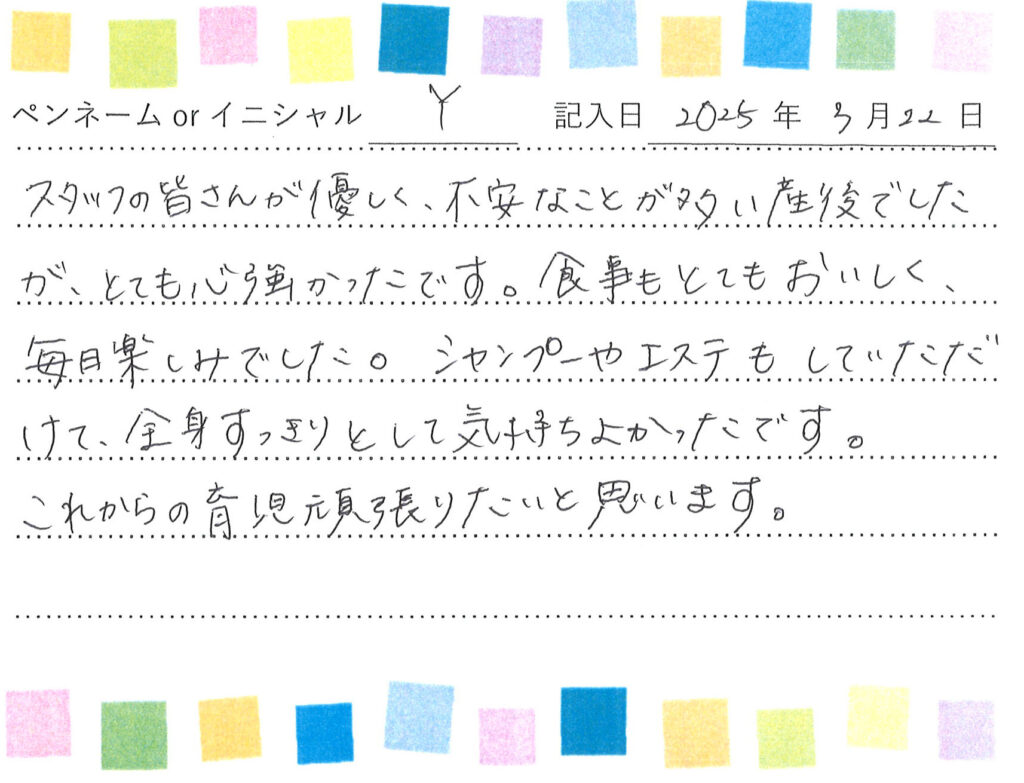 ペンネーム or イニシャル Y 記入日 2025 年 3 月 22 日
スタッフの皆さんが優しく、不安なことが多い産後でした
が、とても心強かったです。食事もとてもおいしく、
毎日楽しみでした。シャンプーやエステもしていただ
けて、全身すっきりとして気持ちよかったです。
これからの育児頑張りたいと思います。